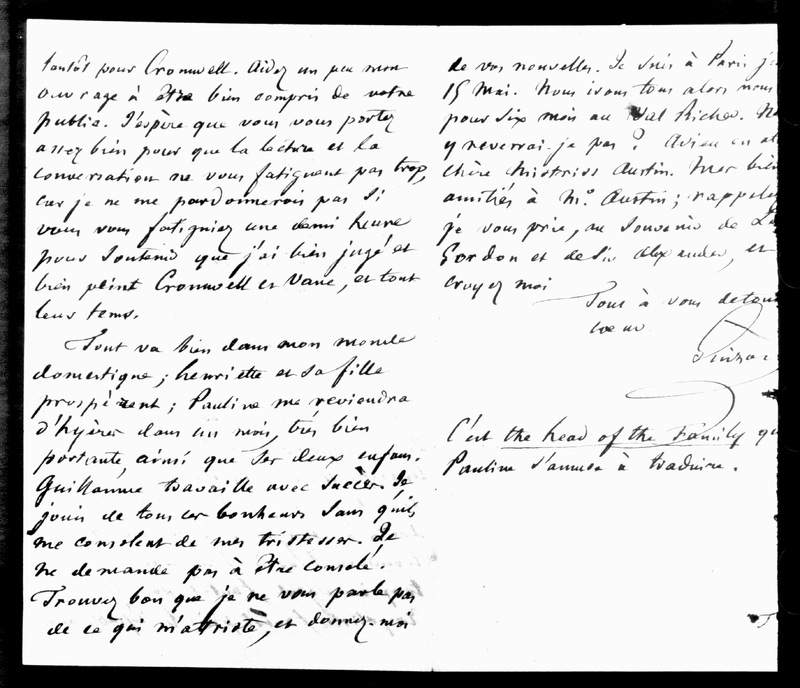 tantôt pour Cromwell. Aidez un peu mon
ouvrage à être bien compris de votre
public. J'espère que vous vous portez
assez bien pour que la lecture et la
conversation ne vous fatiguent pas trop,
car je ne me pardonnerois pas si
vous vous fatigniez une demi heure
pour soutenir que j'ai bien jugé et
bien peint Cromwell et Vane, et tout
leur tems.
Tout va bien dans mon monde
domestique; henriette et sa fille
prospèrent; Pauline me reviendra
d'hyères dans un mois, très bien
portante, ainsi que ses deux enfans.
Guillaume travaille avec succès. Je
jouis de tous ces bonheurs sans qu'ils
me consolent de mes tristesses. Je
ne demande pas à être consolé.
Trouvez bon que je ne vous parle pas
de ce qui m'attriste, et donnez-moi
de vos nouvelles. Je suis à Paris
15 Mai. Nous irons tous alors nous
pour six mois au Val Richer. Ne
y reverrai-je pas? Adieu
chère Mistriss Austin. Mes bien
amitiés à Mr. Austin; rappelez
je vous prie, au souvenir de
Gordon et de Sir Alexander, et
croyez moi
Tout à vous de tout
coeur
Guizot
C'est the head of the Family
Pauline s'amuse à traduire.